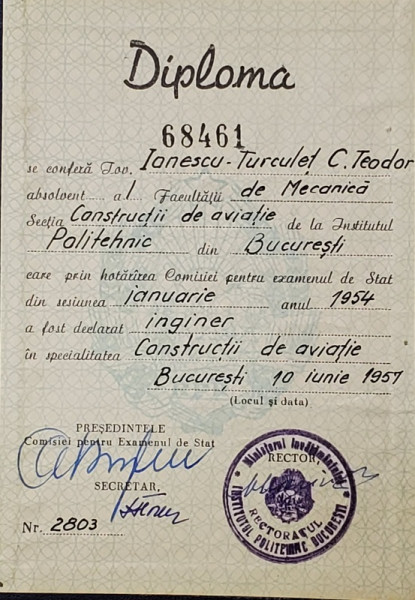 Diploma
68461
se conferă Tov. Ionescu-Turculeț C. Teodor
absolvent al Facultății de Mecanică
Secția Construcții de aviație de la Institutul
Politehnic din București
care prin hotărîrea Comisiei pentru examenul de Stat
din sesiunea ianuarie anul 1954
a fost declarat inginer
în specialitatea Construcții de aviație
București 10 iunie 1957
(Locul și data)
PREȘEDINTELE
Comisiei pentru Examenul de Stat
RECTOR,
SECRETAR,
Nr. 2803
Ministerul Învățămîntului
INSTITUTUL POLITEHNIC BUCUREȘTI
RECTORATUL